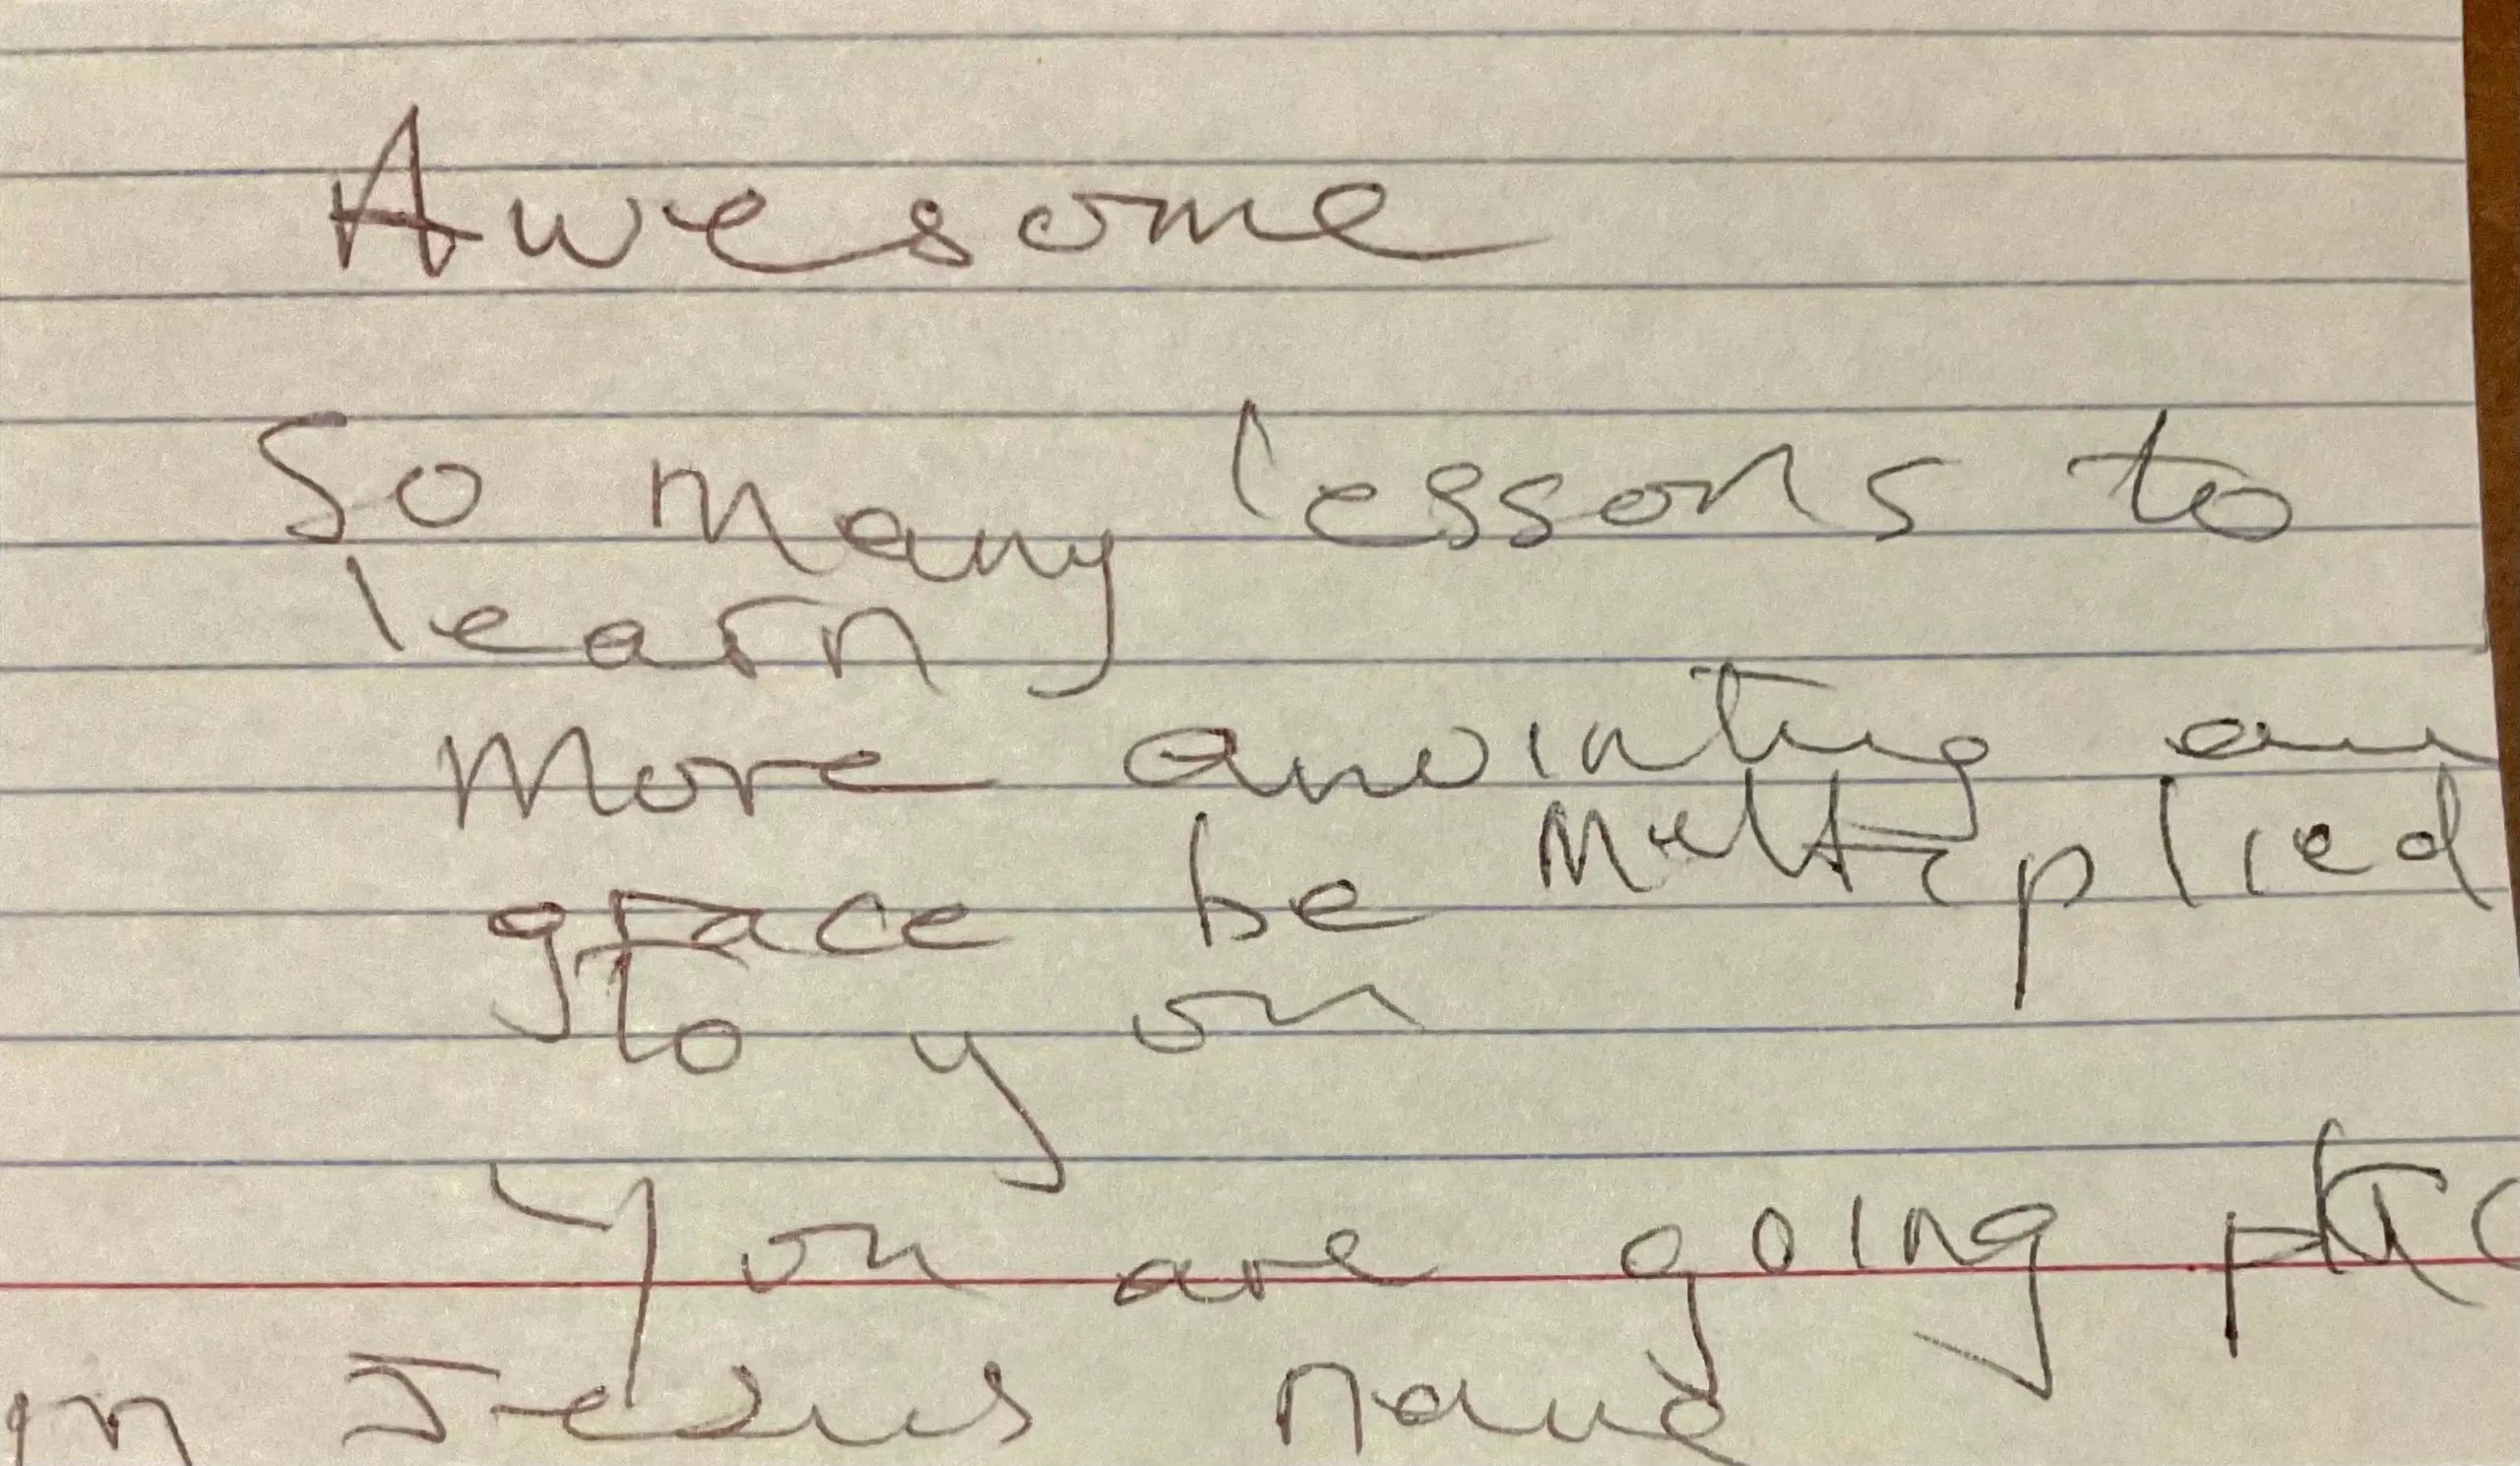 Awesome
So many lessons to
learn
More anointing an
grace be multiplied
to you
You are going plac
in Jesus name